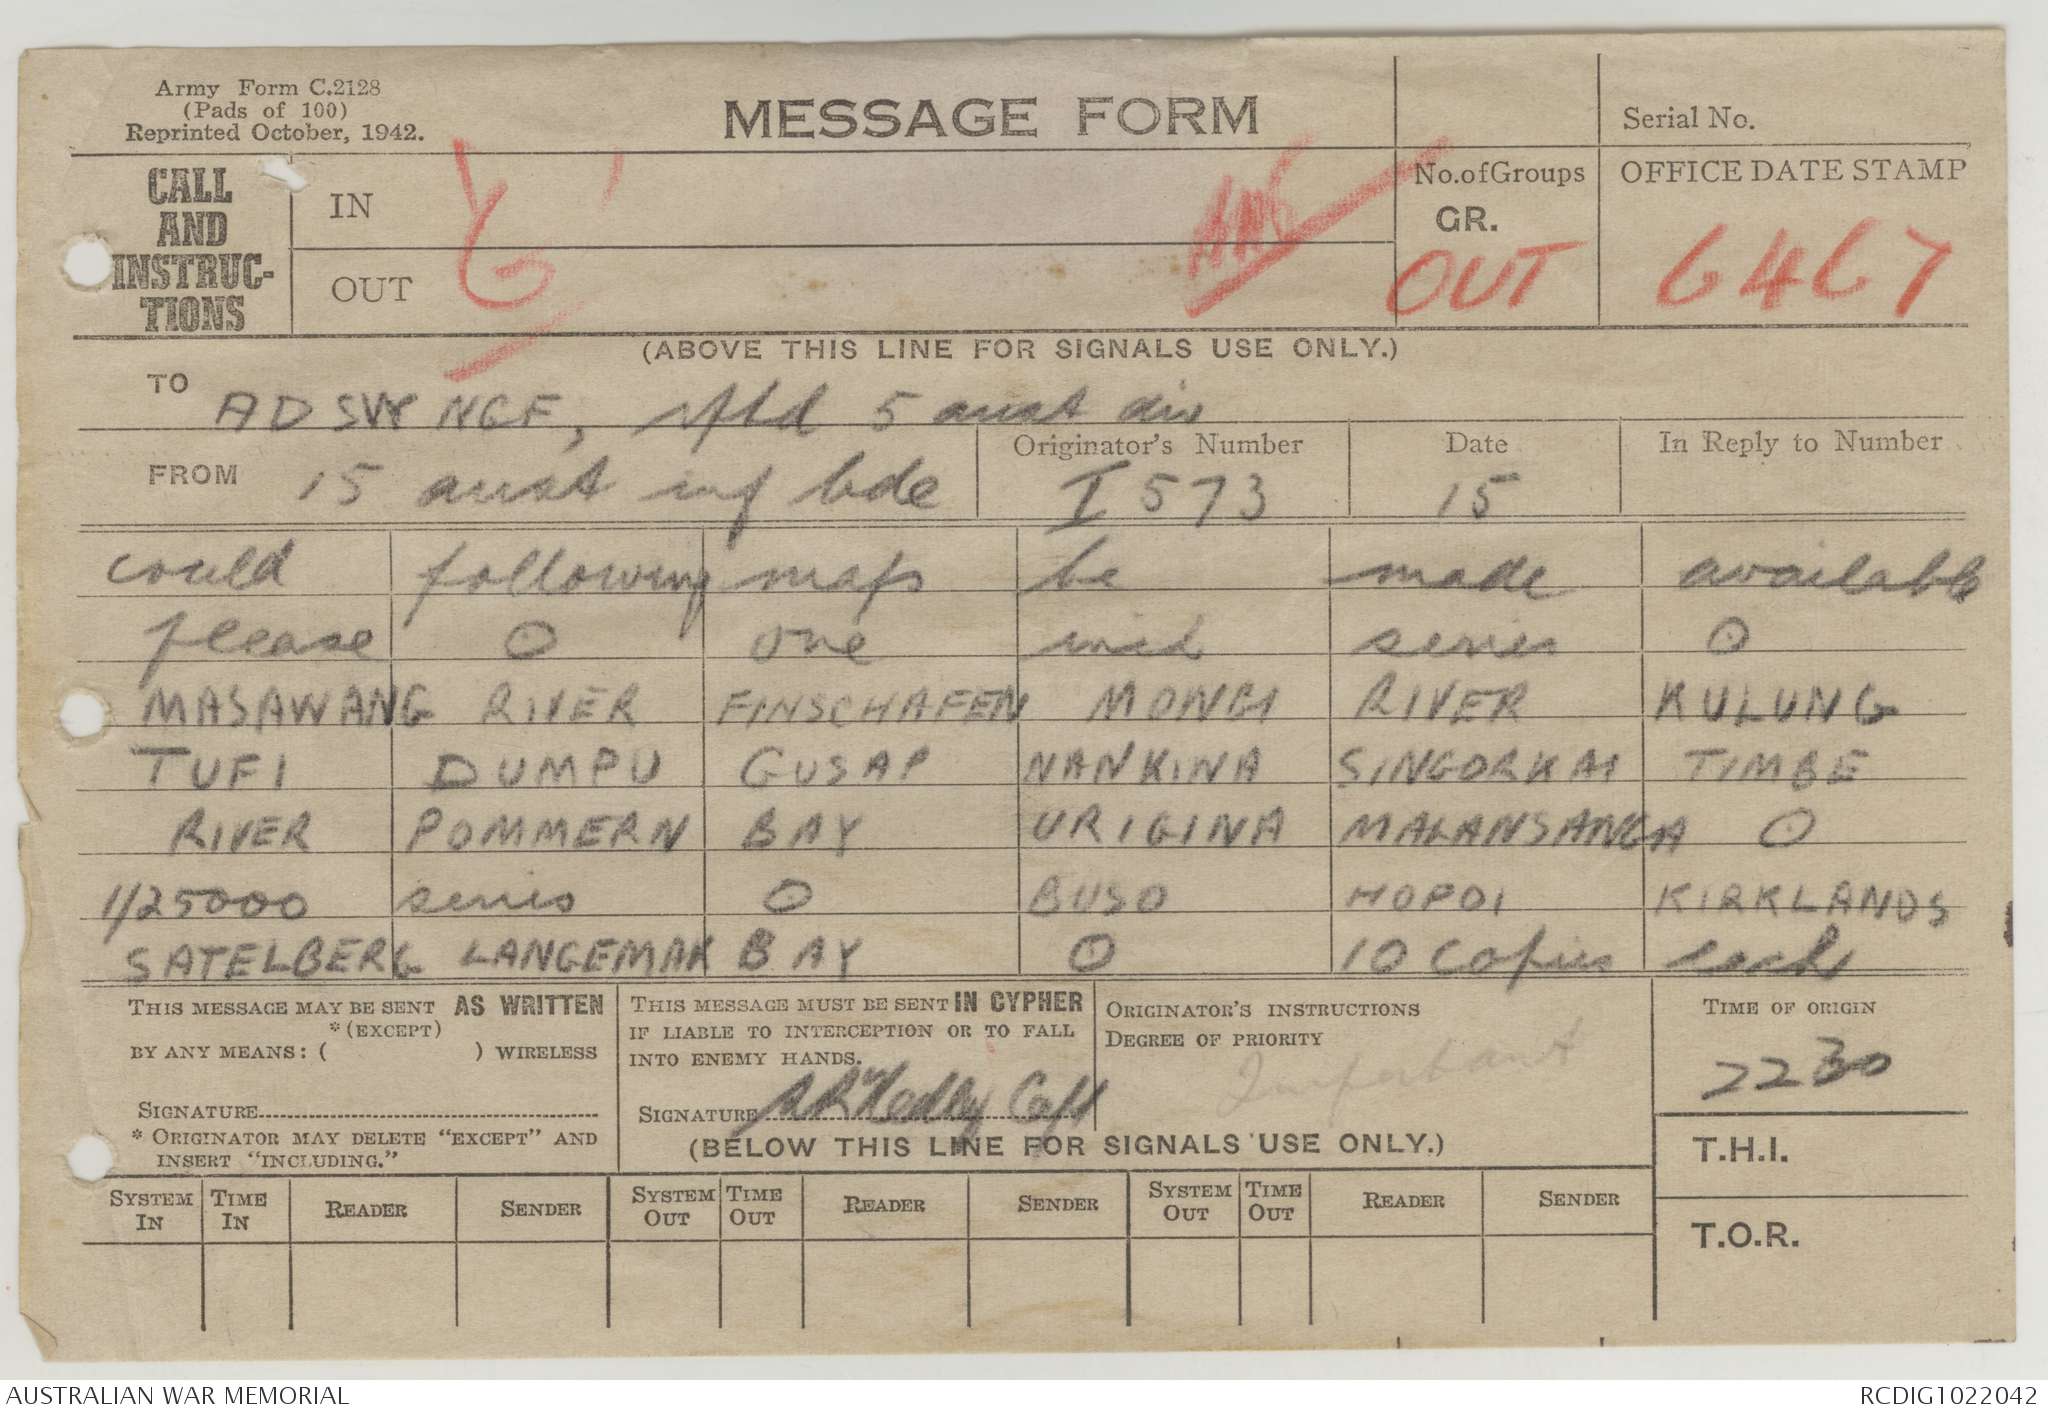 Army Form C.2128
(Pads of 100)
Reprinted October, 1942.
MESSAGE FORM
Serial No.
CALL
AND
INSTRUC-
TIONS
IN
OUT
No.of Groups
GR.
OUT
OFFICE DATE STAMP
6467
(ABOVE THIS LINE FOR SIGNALS USE ONLY.)
TO
5 aust div
FROM 15 aust inf bde
Originator's Number
I 573
Date
15
In Reply to Number
could following maps be made available
please O one inch series O
MASAWANG RIVER FINSCHAFEN MONGI RIVER KULUNG
TUFI DUMPU GUSAP NANKINA SINGORKAI TIMBE
RIVER POMMERN BAY URIGINA MALANSANGA O
1/25000 series O BUSO HOPOI KIRKLANDS
SATELBERG LANGEMAK BAY O 10 copies each
THIS MESSAGE MAY BE SENT AS WRITTEN
*(EXCEPT)
BY ANY MEANS: ( ) WIRELESS
SIGNATURE
* ORIGINATOR MAY DELETE "EXCEPT" AND
INSERT "INCLUDING."
THIS MESSAGE MUST BE SENT IN CYPHER
IF LIABLE TO INTERCEPTION OR TO FALL
INTO ENEMY HANDS.
SIGNATURE Capt
ORIGINATOR'S INSTRUCTIONS
DEGREE OF PRIORITY
Important
TIME OF ORIGIN
2230
T.H.I.
T.O.R.
(BELOW THIS LINE FOR SIGNALS USE ONLY.)
SYSTEM IN TIME IN READER SENDER SYSTEM OUT TIME OUT READER SENDER SYSTEM OUT TIME OUT READER SENDER
AUSTRALIAN WAR MEMORIAL
RCDIG1022042